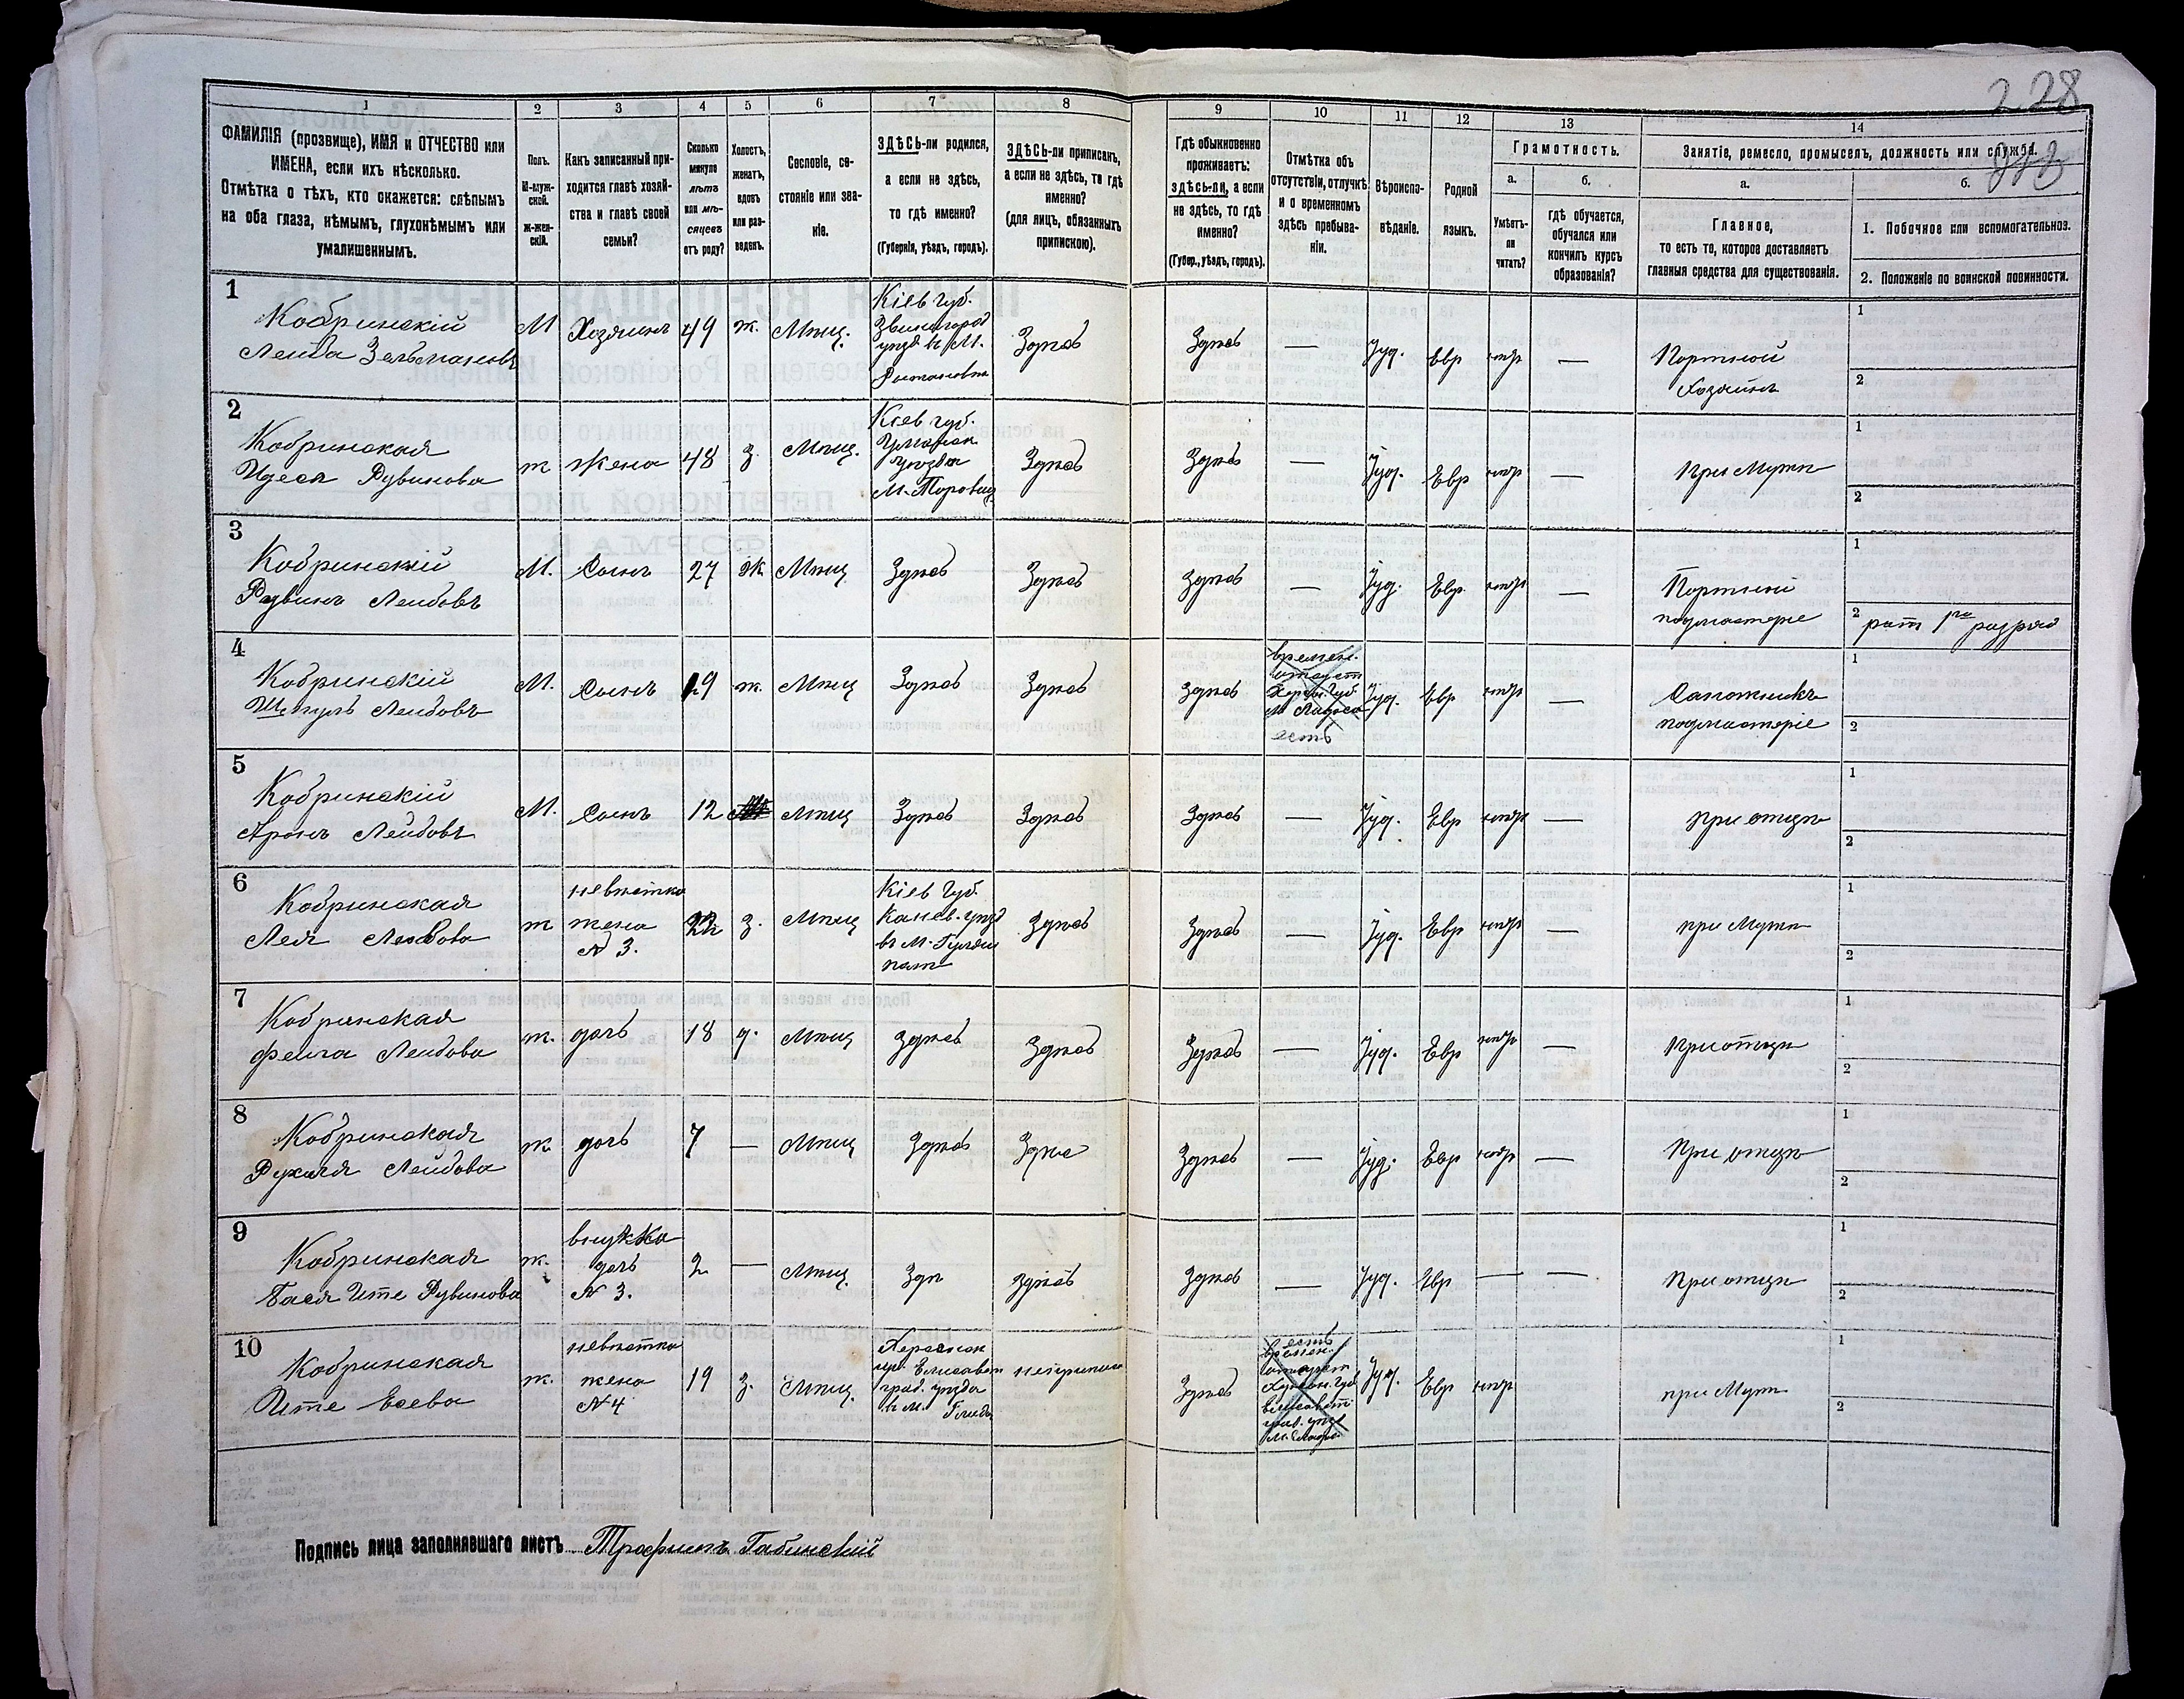 2 28
1 2 3 4 5 6 7 8 9 10 11 12 13 14
ФАМИЛІЯ (прозвище), ИМЯ и ОТЧЕСТВО или
ИМЕНА, если ихъ нѣсколько.
Отмѣтка о тѣхъ, кто окажется: слѣпымъ
на оба глаза, нѣмымъ, глухонѣмымъ или
умалишеннымъ.
Полъ.
М-муж-
ской.
ж-жен-
скій.
Какъ записанный при-
ходится главѣ хозяй-
ства и главѣ своей
семьи?
Сколько
минуло
лѣтъ
или мѣ-
сяцевъ
отъ роду?
Холостъ,
женатъ,
вдовъ
или раз-
веденъ.
Сословіе, со-
стояніе или зва-
ніе.
ЗДѢСЬ-ли родился,
а если не здѣсь,
то гдѣ именно?
(Губернія, уѣздъ, городъ).
ЗДѢСЬ-ли приписанъ,
а если не здѣсь, то гдѣ
именно?
(для лицъ, обязанныхъ
припискою).
Гдѣ обыкновенно
проживаетъ:
здѣсь-ли, а если
не здѣсь, то гдѣ
именно?
(Губер., уѣздъ, городъ).
Отмѣтка объ
отсутствіи, отлучкѣ
и о временномъ
здѣсь пребыва-
ніи.
Вѣроиспо-
вѣданіе.
Родной
языкъ.
Грамотность.
а.
Умѣетъ-
ли
читать?
б.
Гдѣ обучается,
обучался или
кончилъ курсъ
образованія?
Занятіе, ремесло, промыселъ, должность или служба.
а.
Главное,
то есть то, которое доставляетъ
главныя средства для существованія.
б.
1. Побочное или вспомогательное.
2. Положеніе по воинской повинности.
1
Кобринскій
Лейба Зельмановъ
М Хозяинъ 49 ж. Мѣщ.
Кіев губ.
Звенигород
уѣзд в М.
Здѣсь Здѣсь — Іуд. Евр нѣтъ —
Портной
Хозяинъ
1
2
2
Кобринская
Рувинова
ж Жена 48 з. Мѣщ.
Кіев губ.
Уманск
уѣзда
Здѣсь Здѣсь — Іуд. Евр нѣтъ —
при Мужѣ
1
2
3
Кобринскій
Рувинъ Лейбовъ
М. Сынъ 27 Ж Мѣщ Здѣсь Здѣсь Здѣсь — Іуд. Евр. нѣтъ —
Портной
подмастеріе
1
2 рат 1го разряд
4
Кобринскій
Лейбовъ
М. Сынъ 19 ж. Мѣщ Здѣсь Здѣсь Здѣсь
времен.
есть
Іуд. Евр нѣтъ —
Сапожникъ
подмастеріе
1
2
5
Кобринскій
Аронъ Лейбовъ
М. Сынъ 12 Мѣщ Здѣсь Здѣсь Здѣсь — Іуд. Евр нѣтъ —
при отцѣ
1
2
6
Кобринская
Лея
ж
невѣстка
жена
N 3.
22 з. Мѣщ
Кіев Губ.
Канев. уѣзд
в М.
Здѣсь Здѣсь — Іуд. Евр нѣтъ —
при Мужѣ
1
2
7
Кобринская
Фейга Лейбова
ж. дочь 18 д. Мѣщ здѣсь Здѣсь Здѣсь — Іуд. Евр нѣтъ —
При отцѣ
1
2
8
Кобринская
Рухля Лейбова
ж. дочь 7 — Мѣщ Здѣсь Здѣс Здѣсь — Іуд. Евр нѣтъ —
При отцѣ
1
2
9
Кобринская
Бася Ите Рувинова
ж.
внучка
дочь
N 3.
2 — Мѣщ. Здѣ здѣсь Здѣсь — Іуд. Евр — —
При отцѣ
1
2
10
Кобринская
Ите
ж.
невѣстка
жена
N 4
19 з. Мѣщ.
Херсонск
Елисавет
град. уѣзда
Здѣсь
есть
времен.
Іуд. Евр нѣтъ
при Мужѣ
1
2
Подпись лица заполнявшаго листъ Трофимъ Габинскій